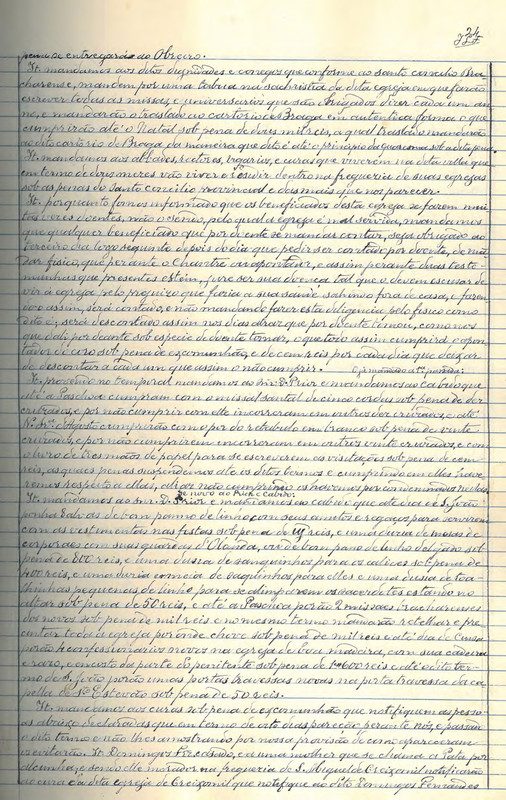 pena se entregarás ao Obreiro.
It. mandamos aos ditos dignidades e conegos que conforme ao santo concilio Bra-
charense, mandem por uma tabua na sachristia da dita egreja em que farão
escrever todas as missas, e universarios que são obrigados dizer cada um an-
no, e mandarão o traslado ao cartorio de Braga em autentica forma o que
cumprirão até o Natal sob pena de dois mil reis, o qual traslado mandarão
ao dito cartorio de Braga da maneira que dito é até o principio da quaresma sob a dita pena.
It. mandamos aos abbades, reitores, vigarios, e curas que viverem na dita villa que
em termo de dois meses vão viver e residir dentro na freguezia de suas egrejas
sob as penas do santo concilio provincial e das mais que nos parecer.
It. porquanto fomos informado que os beneficiados desta egreja se fazem mui-
tas vezes doentes, não o sendo, pelo qual a egreja é mal servida, mandamos
que qualquer beneficiado que por doente se mandar contar, seja obrigado ao
terceiro dia logo seguinte depois do dia que pedir ser contado por doente, de man-
dar fisico, que perante o Chantre ou apontador, e assim perante duas teste-
munhas que presentes estém, jure ser sua doença tal que o devem escusar de
vir á egreja pelo prejuizo que faria a sua saude sahindo fora de casa, e fazen-
do o assim, será contado, e não mandando fazer esta diligencia pelo fisico como
dito é, será descontado assim nos dias atraz que por doente tomou, como nos
que dali por deante sob especie de doente tomar, o que todo assim cumprirá o apon-
tador do coro sob pena de excomunhão, e de cem reis por cada dia que deixar
de descontar a cada um que assim o não cumprir.
It. provendo no temporal mandamos ao snr. D. Prior e mandamos ao cabido que
até a Paschoa cumpram com o missal santal de cinco cordas sob pena de dez
cruzados, e por não cumprir com elle incorreram em outros dez cruzados, e até
N. Sr.ª d'Agosto cumpirão com o por do retabolo em branco sob pena de vinte
cruzados, e por não cumprirem incorreram em outros vinte cruzados, e com
o livro de tres mãos de papel para se escreverem as visitações sob pena de cem
reis, as quaes penas suspendemos até os ditos termos e cumprindo em elles have-
remos respeito a ellas, aliaz não cumprindo os havemos por condemnados nellas.
De novo ao Prior e Cabido
It. mandamos ao snr. D. Prior e mandamos ao cabido que até dia de S. João
ponha 2 alvas de bom panno de linho com seus amitos e regaços para servirem
com as vestimentas nas festas sob pena de reis, e uma duzia de mesas de
corporaes com suas guardas d'Olanda, ou de bom pano de linho delgado sob
pena de 800 reis, e uma dusea de sanguinhos para os calices sob pena de
400 reis, e uma duzia e meia de saquinhos para elles e uma dusea de toa-
lhinhas pequenas de linho para se alimparem os sacerdotes estando no
altar sob pena de 50 reis, e até a Paschoa porão 2 missaes bracharenses
dos novos sob pena de mil reis e no mesmo termo mandarão retelhar e pre-
entar toda a egreja por onde chove sob pena de mil reis e até dia de Cinza
porão 4 confessionarios novos na egreja de boa madeira, com sua cadeira
e raro, e encosto da parte do penitente sob pena de 1$600 reis e até o dito ter-
mo de S. João porão umas portas travessas novas na porta travessa da ca-
pella de S.to Estevão sob pena de 50 reis.
It. mandamos aos curas sob pena de excomunhão que notifiquem as pesso-
as abaixo declaradas que em termo de oito dias pareção perante nós, e passan-
do o dito termo e não lhes amostrando por nossa provisão de como apareceram
os evitarão. It. Domingos Frz casado, e a uma molher que se chama a Pata por
alcunha, e sendo elle morador na freguezia de S. Miguel de Creixomil notificarão
ao cura da dita egreja de Creixomil que notifique ao dito Domingos Fernandes